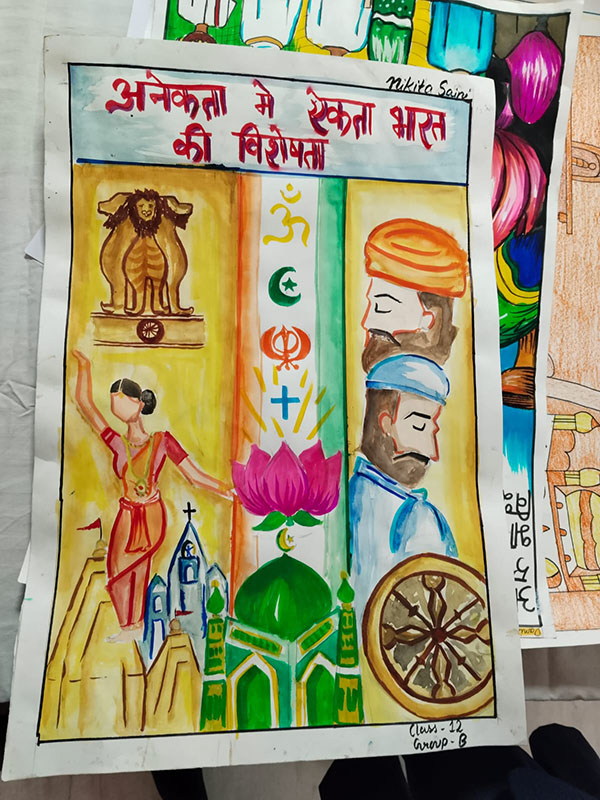 Nikita Saini
अनेकता मे ऐकता भारत
की विशेषता
Class - 12
Group - B